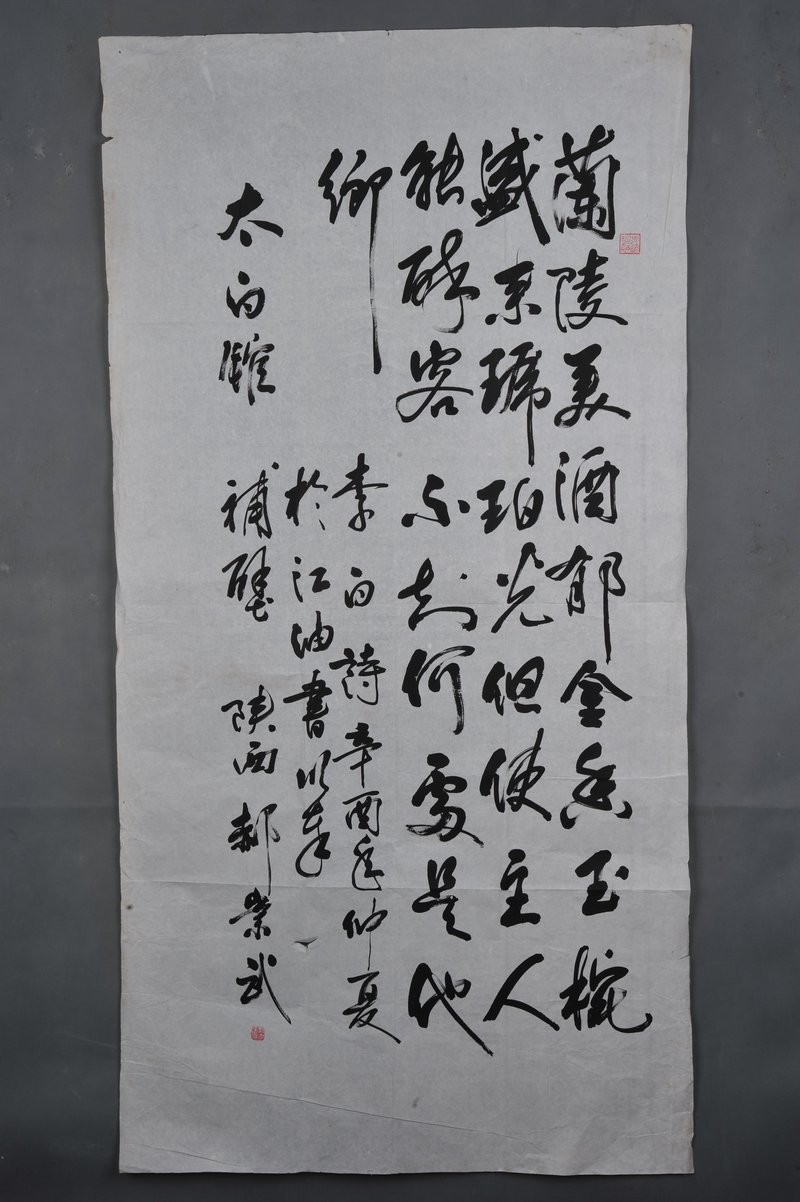 蘭陵美酒郁金香玉椀
盛来琥珀光但使主人
能醉客不知何處是他
鄉
李白詩辛酉年仲夏
於江油書以奉
太白館 補壁 陝西郝武